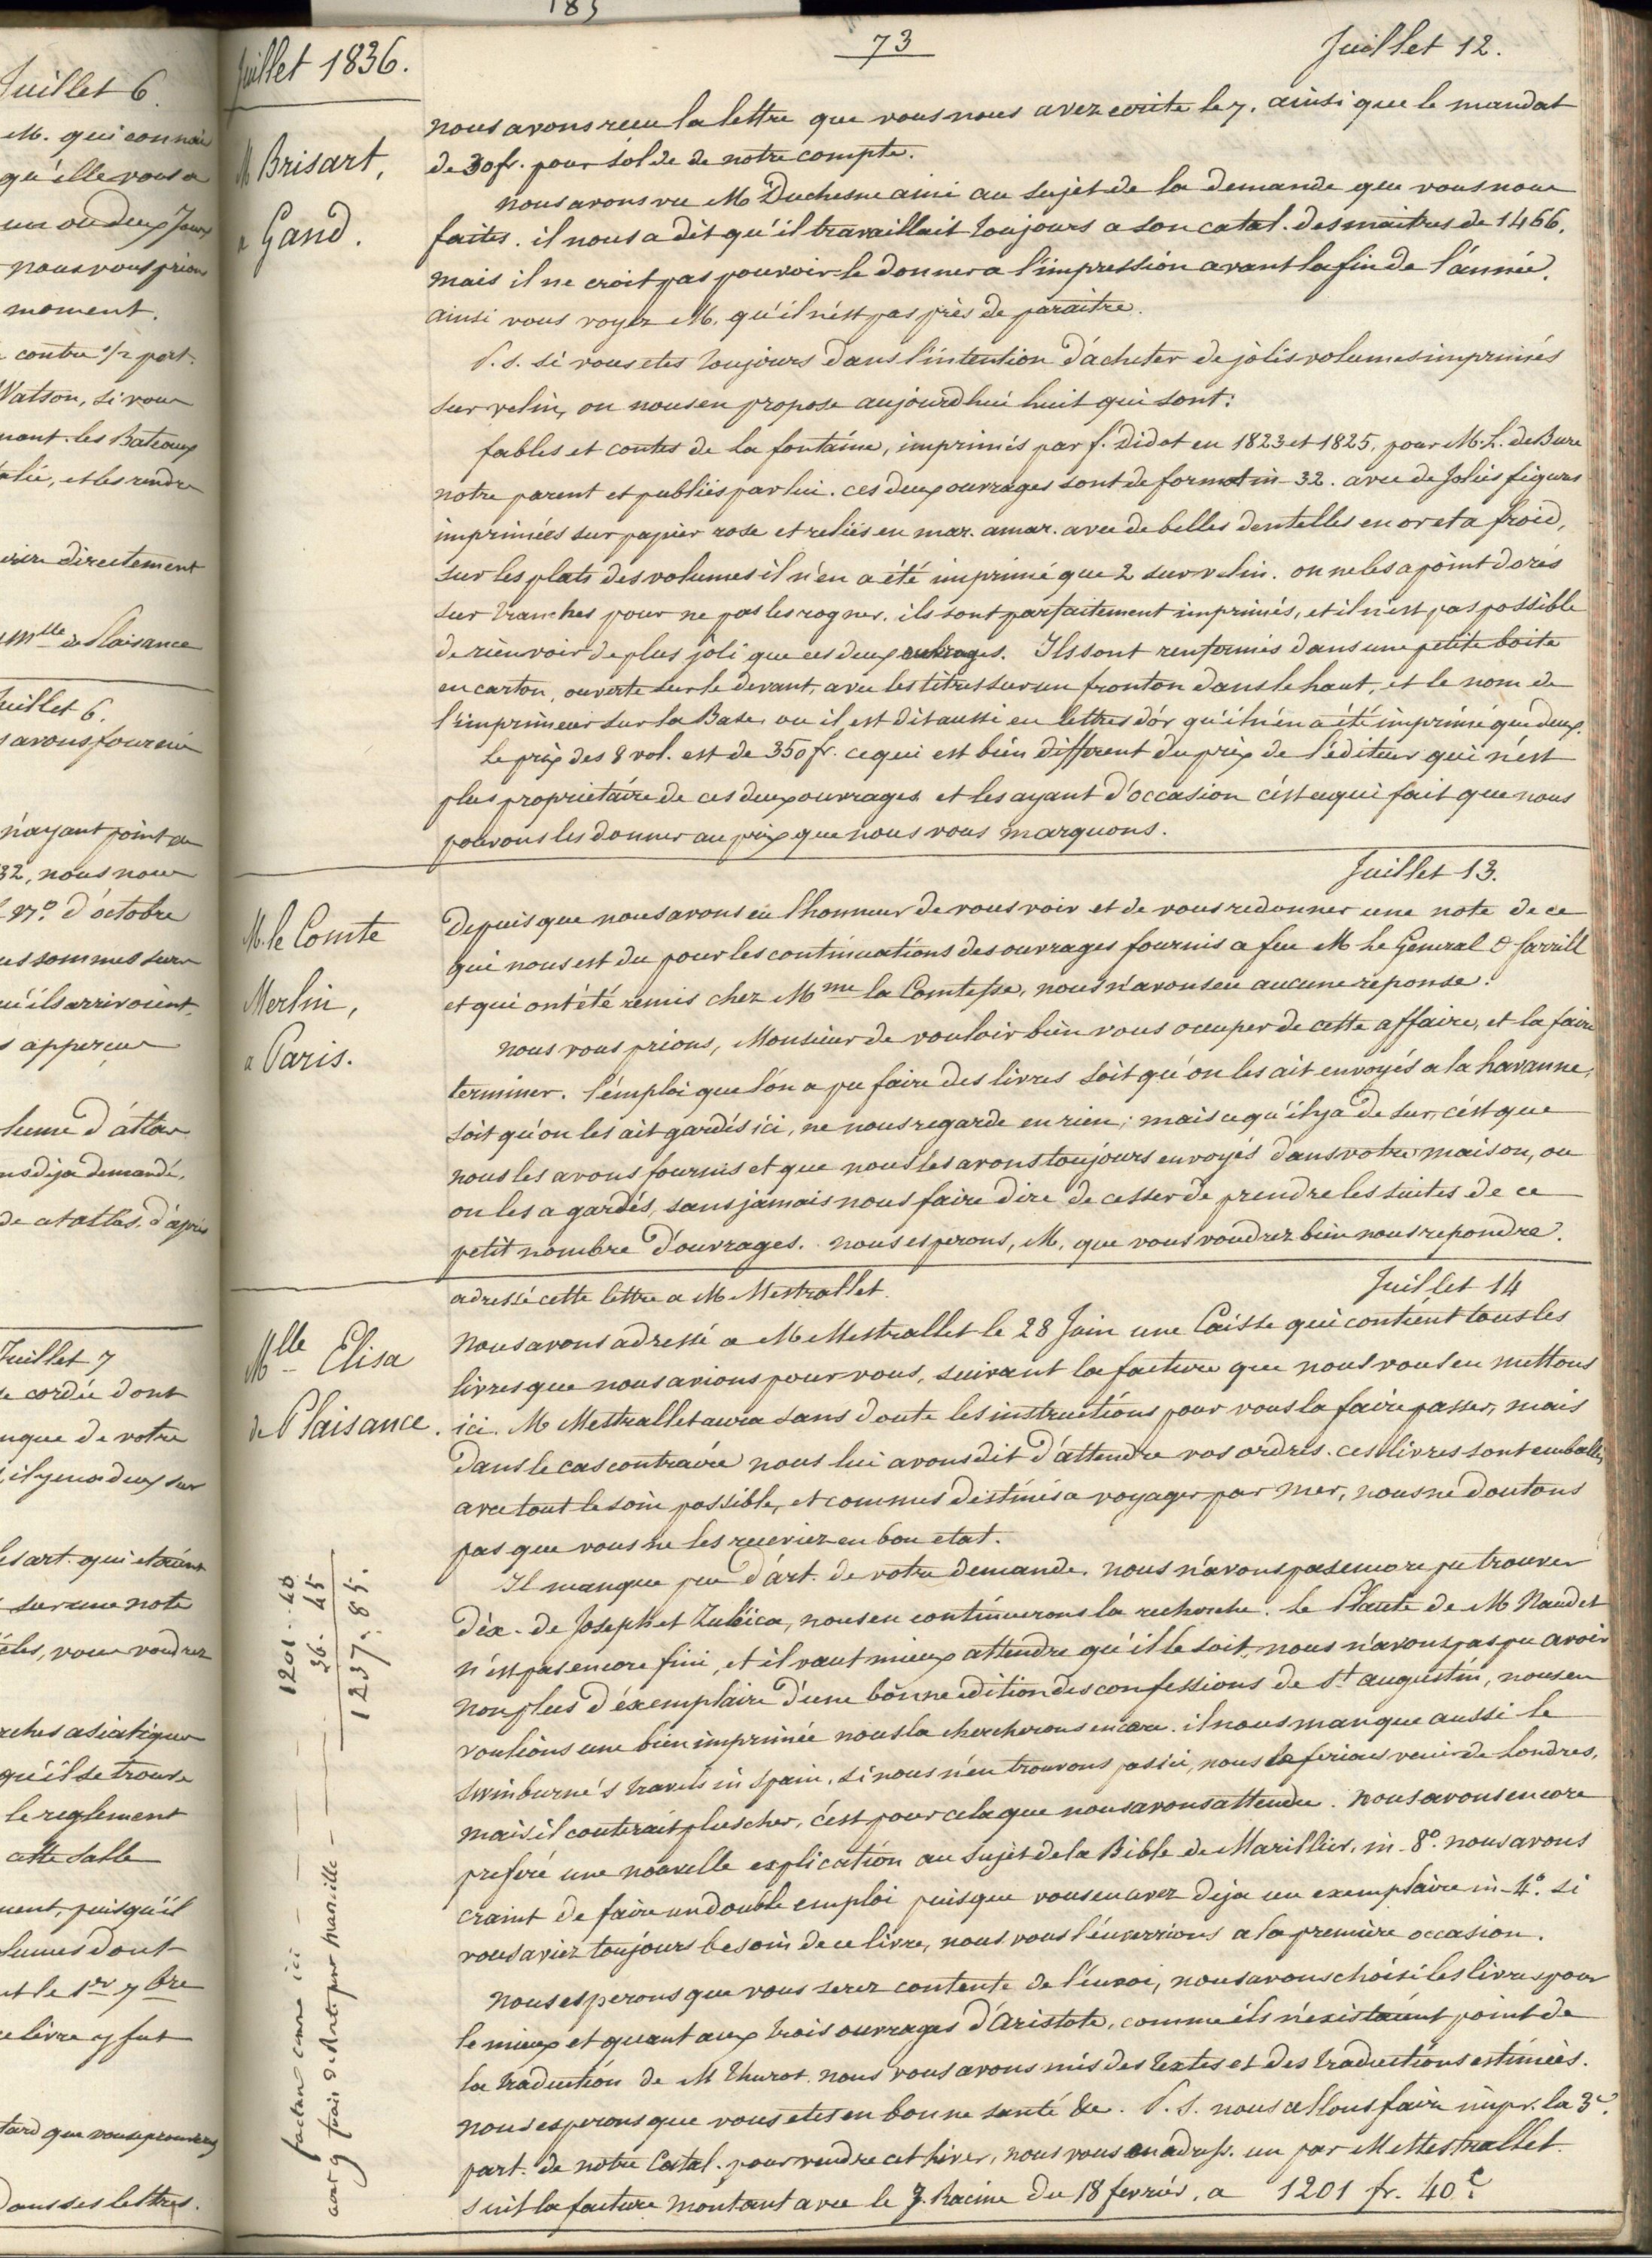 185
Juillet 6.
M. qui connai
qu'elle vous a
un ou deux Jours
nous vous prions
moment.
contre 1/2 part.
Watson, si vous
les Bateaux
et les rendre
directement
Mlle de Plaisance
Juillet 6.
avons fourni
n'ayant point de
32, nous nous
n° d'octobre
sommes surs
qu'ils arrivoient
apperçus
d'atlas
deja demandé,
d'après
Juillet 7
cordée dont
de votre
il y en a deux sur
les art. qui etaient
sur une note
vous voudrez
asiatiques
qu'il se trouve
le reglement
cette salle
puisqu'il
dont
et le 1er 7bre
livre y fut
tard que vous
dans ses lettres.
Juillet 1836.
73
Juillet 12.
M Brisart,
a Gand.
nous avons reçu la lettre que vous nous avez ecrite le 7. ainsi que le mandat
de 30 fr. pour solde de notre compte.
nous avons vu M Duchesne ainé au sujet de la demande que vous nous
faites. il nous a dit qu'il travaillait toujours a son catal. des maitres de 1466.
mais il ne croit pas pouvoir le donner a l'impression avant la fin de l'année.
ainsi vous voyez M. qu'il n'est pas près de paraitre.
P. S. si vous etes toujours dans l'intention d'acheter de jolis volumes imprimés
sur velin, on nous en propose aujourdhui huit qui sont:
fables et contes de la fontaine, imprimés par f. Didot en 1823 et 1825, pour M. L. de Bure
notre parent et publiés par lui. ces deux ouvrages sont de format in-32. avec de Jolies figures
imprimées sur papier rose et reliés en mar. amar. avec de belles dentelles en or et a froid,
sur les plats des volumes il n'en a été imprimé que 2 sur velin. on ne les a point dorés
sur tranches pour ne pas les rogner. ils sont parfaitement imprimés, et il n'est pas possible
de rien voir de plus joli que ces deux ouvrages. Ils sont renfermés dans une petite boite
en carton, ouverte sur le devant, avec les titres sur un fronton dans le haut, et le nom de
l'imprimeur sur la Base, ou il est dit aussi en lettres d'or qu'il n'en a été imprimé que deux.
Le prix des 8 vol. est de 350 fr. ce qui est bien different du prix de l'éditeur qui n'est
plus proprietaire de ces deux ouvrages et les ayant d'occasion c'est ce qui fait que nous
pouvons les donner au prix que nous vous marquons.
Juillet 13.
M. le Comte
Merlin,
a Paris.
Depuis que nous avons eu l'honneur de vous voir et de vous redonner une note de ce
qui nous est du pour les continuations des ouvrages fournis a feu M Le General O farrill
et qui ont été remis chez Mme la Comtesse, nous n'avons eu aucune reponse.
nous vous prions, Monsieur de vouloir bien vous occuper de cette affaire, et la faire
terminer. l'emploi que l'on a pu faire des livres soit qu'on les ait envoyés a la havanne,
soit qu'on les ait gardés ici, ne nous regarde en rien; mais ce qu'il y a de sur, c'est que
nous les avons fournis et que nous les avons toujours envoyés dans votre maison, ou
on les a gardés, sans jamais nous faire dire de cesser de prendre les suites de ce
petit nombre d'ouvrages. nous esperons, M, que vous voudrez bien nous repondre.
adressé cette lettre a M Mestrallet.
Juillet 14
Mlle Elisa
de Plaisance.
Nous avons adressé a M Mestrallet le 28 Juin une Caisse qui contient tous les
livres que nous avions pour vous, suivant la facture que nous vous en mettons
ici. M Mestrallet aura sans doute les instructions pour vous la faire passer, mais
dans le cas contraire nous lui avons dit d'attendre vos ordres. ces livres sont emballés
avec tout le soin possible, et comme destinés a voyager par mer, nous ne doutons
pas que vous ne les receviez en bon etat.
Il manque peu d'art. de votre demande. nous n'avons pas encore pu trouver
d'ex. de Joseph et Zuleica, nous en continuerons la recherche. le Plaute de M Naudet
n'est pas encore fini, et il vaut mieux attendre qu'il le soit, nous n'avons pas pu avoir
non plus d'exemplaire d'une bonne edition des confessions de St augustin, nous en
voulions une bien imprimée nous la chercherons encore. il nous manque aussi le
Swinburne's travels in Spain, si nous n'en trouvons pas ici, nous le ferions venir de Londres,
mais il couterait plus cher, c'est pour cela que nous avons attendu. Nous avons encore
preferé une nouvelle explication au sujet de la Bible de Marillier, in-8°. nous avons
craint de faire un double emploi puisque vous en avez deja un exemplaire in-4°. si
vous aviez toujours besoin de ce livre, nous vous l'enverrions a la première occasion.
nous esperons que vous serez contente de l'envoi, nous avons choisi les livres pour
le mieux et quant aux trois ouvrages d'Aristote, comme ils n'existaient point de
la traduction de M Thurot. nous vous avons mis des textes et des traductions estimées.
nous esperons que vous etes en bonne santé &c. P. S. nous allons faire impr. la 3e.
part. de notre Catal. pour vendre cet hiver, nous vous en adress. un par M Mestrallet.
suit la facture montant avec le J. Racine du 18 fevrier, a 1201 fr. 40 c.
facture comme ici — 1201. 40
frais — 36. 45
1237. 85.